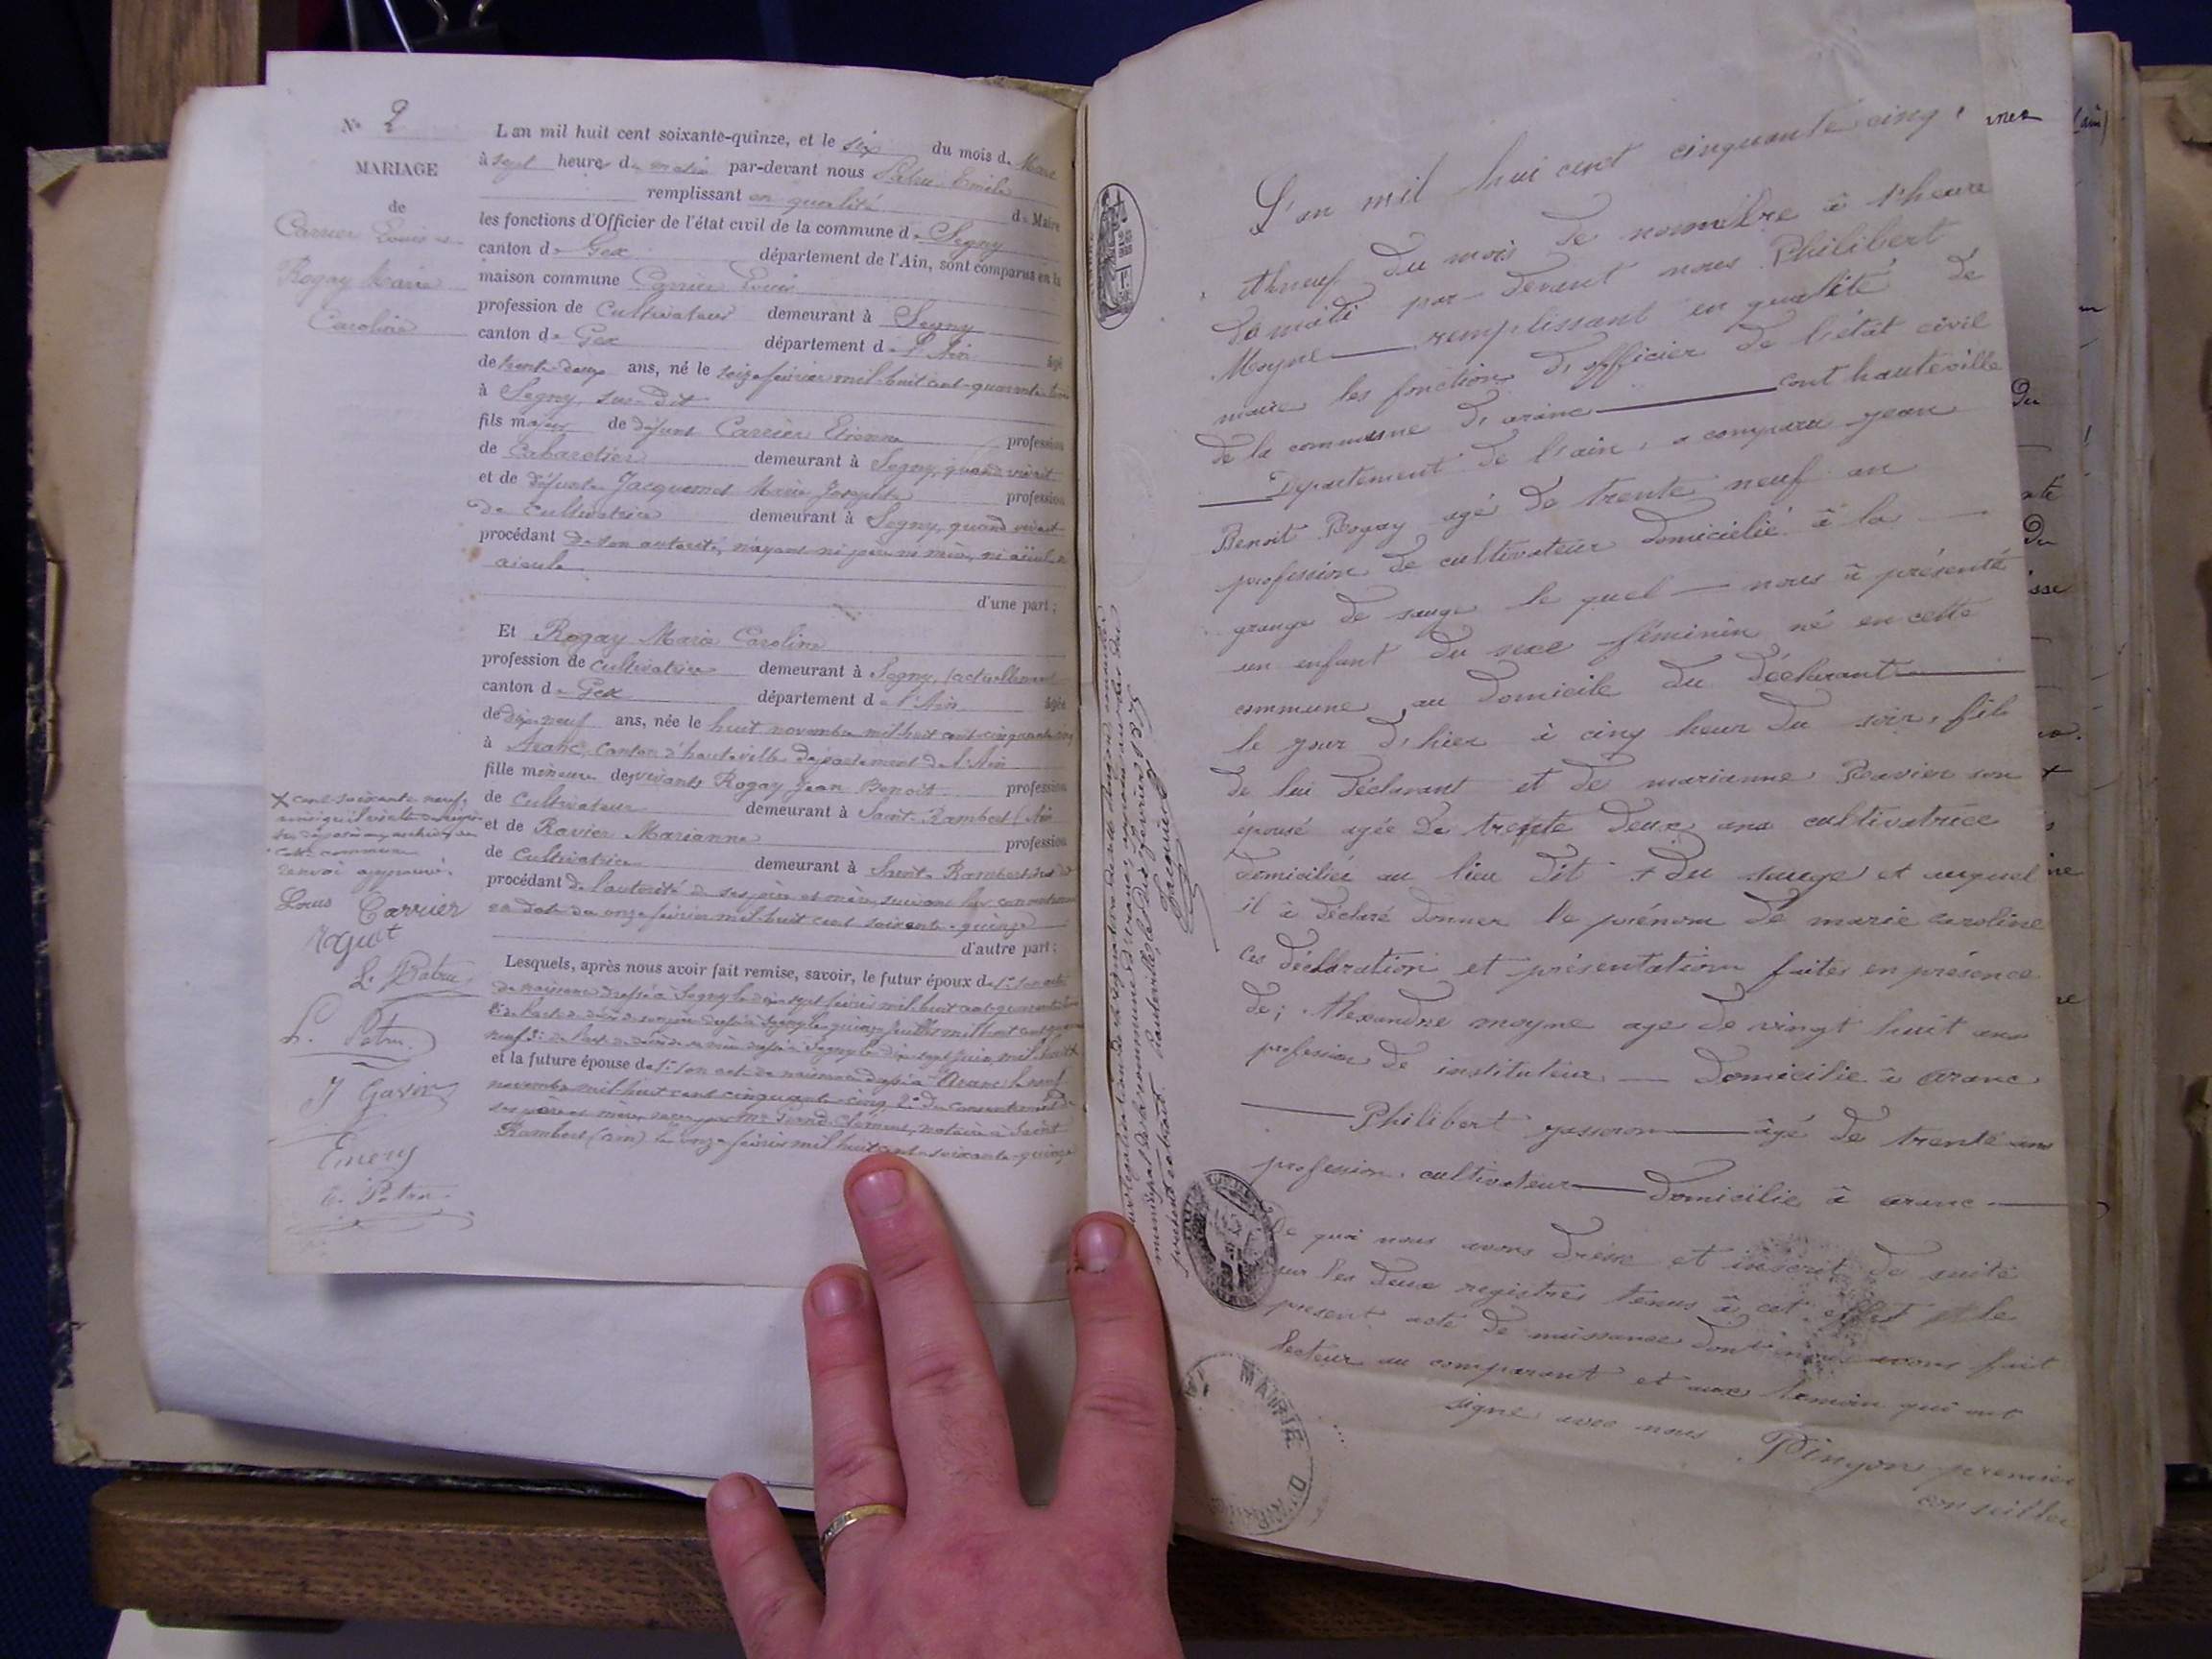 Nº 2
MARIAGE
de
Carrier Louis et
Rogay Marie
Caroline
L'an mil huit cent soixante-quinze, et le six du mois de Mars
à sept heures du matin par-devant nous Patru Emile
remplissant en qualité de Maire
les fonctions d'Officier de l'état civil de la commune de Segny
canton de Gex département de l'Ain, sont comparus en la
maison commune Carrier Louis
profession de Cultivateur demeurant à Segny
canton de Gex département de l'Ain âgé
de trente-deux ans, né le seize février mil-huit cent-quarante-trois
à Segny sus-dit
fils majeur de défunt Carrier Etienne profession
de Cabaretier demeurant à Segny, quand vivait
et de défunte Jacquemet Marie Josephte profession
de Cultivatrice demeurant à Segny, quand vivait
procédant de son autorité, n'ayant ni père ni mère, ni aïeul ni
aieule
d'une part ;
Et Rogay Marie Caroline
profession de Cultivatrice demeurant à Segny, (actuellement
canton de Gex département de l'Ain âgée
de dix-neuf ans, née le huit novembre mil-huit cent-cinquante-cinq
à Aranc, canton d'hauteville département de l'Ain
fille mineure des vivants Rogay Jean Benoit profession
de Cultivateur demeurant à Saint-Rambert (Ain
et de Ravier Marianne profession
de Cultivatrice demeurant à Saint-Rambert
procédant de l'autorité de ses père et mère, suivant leur consentement
en date du onze février mil-huit cent soixante-quinze
d'autre part ;
Lesquels, après nous avoir fait remise, savoir, le futur époux de 1º son acte
de naissance dressé à Segny le dix-sept février mil-huit cent-quarante-trois
2º de l'acte de décès de son père dressé à Segny le quinze juillet mil huit cent
neuf 3º de l'acte de décès de sa mère dressé à Segny le dix sept juin mil-huit
et la future épouse de 1º son acte de naissance dressé à Aranc le neuf
novembre mil-huit cent cinquante-cinq, 2º du consentement de
ses père et mère, reçu par Me Clément, notaire à Saint
Rambert (Ain) le onze février mil huit cent-soixante-quinze
X cent soixante neuf,
cette commune
renvoi approuvé.
Louis Carrier
L. Patru
L. Patru
J Gavin
Emery
E. Patru
L'an mil huit cent cinquante cinq
et le neuf du mois de novembre à 1 heure
de midi par-devant nous Philibert
Moyne remplissant en qualité de
maire les fonctions d'officier de l'état civil
de la commune d'aranc cont hauteville
Département de l'ain, a comparu jean
Benoit Rogay agé de trente neuf an
profession de cultivateur domicilié à la
grange de sauge le quel nous à présenté
un enfant du sexe féminin né en cette
commune au domicile du déclarant
le jour d'hier à cinq heur du soir, fils
de lui déclarant et de marianne Ravier son
épousé agée de trente deux ans cultivatrice
domiciliée au lieu dit + du sauge et auquel
il à déclaré donner le prénom de marie caroline
ces déclaration et présentation faites en présence
de ; Alexandre moyne age de vingt huit ans
profession de instituteur domicilie à aranc
Philibert âgé de trente ans
profession cultivateur domicilie à aranc
De quoi nous avons dressé et inscrit de suite
sur les deux registres tenus à cet effet le
present acte de naissance dont nous avons fait
lecteur au comparant et aux temoin qui ont
signe avec nous Pingon premier
conseiller
MAIRIE D'ARANC